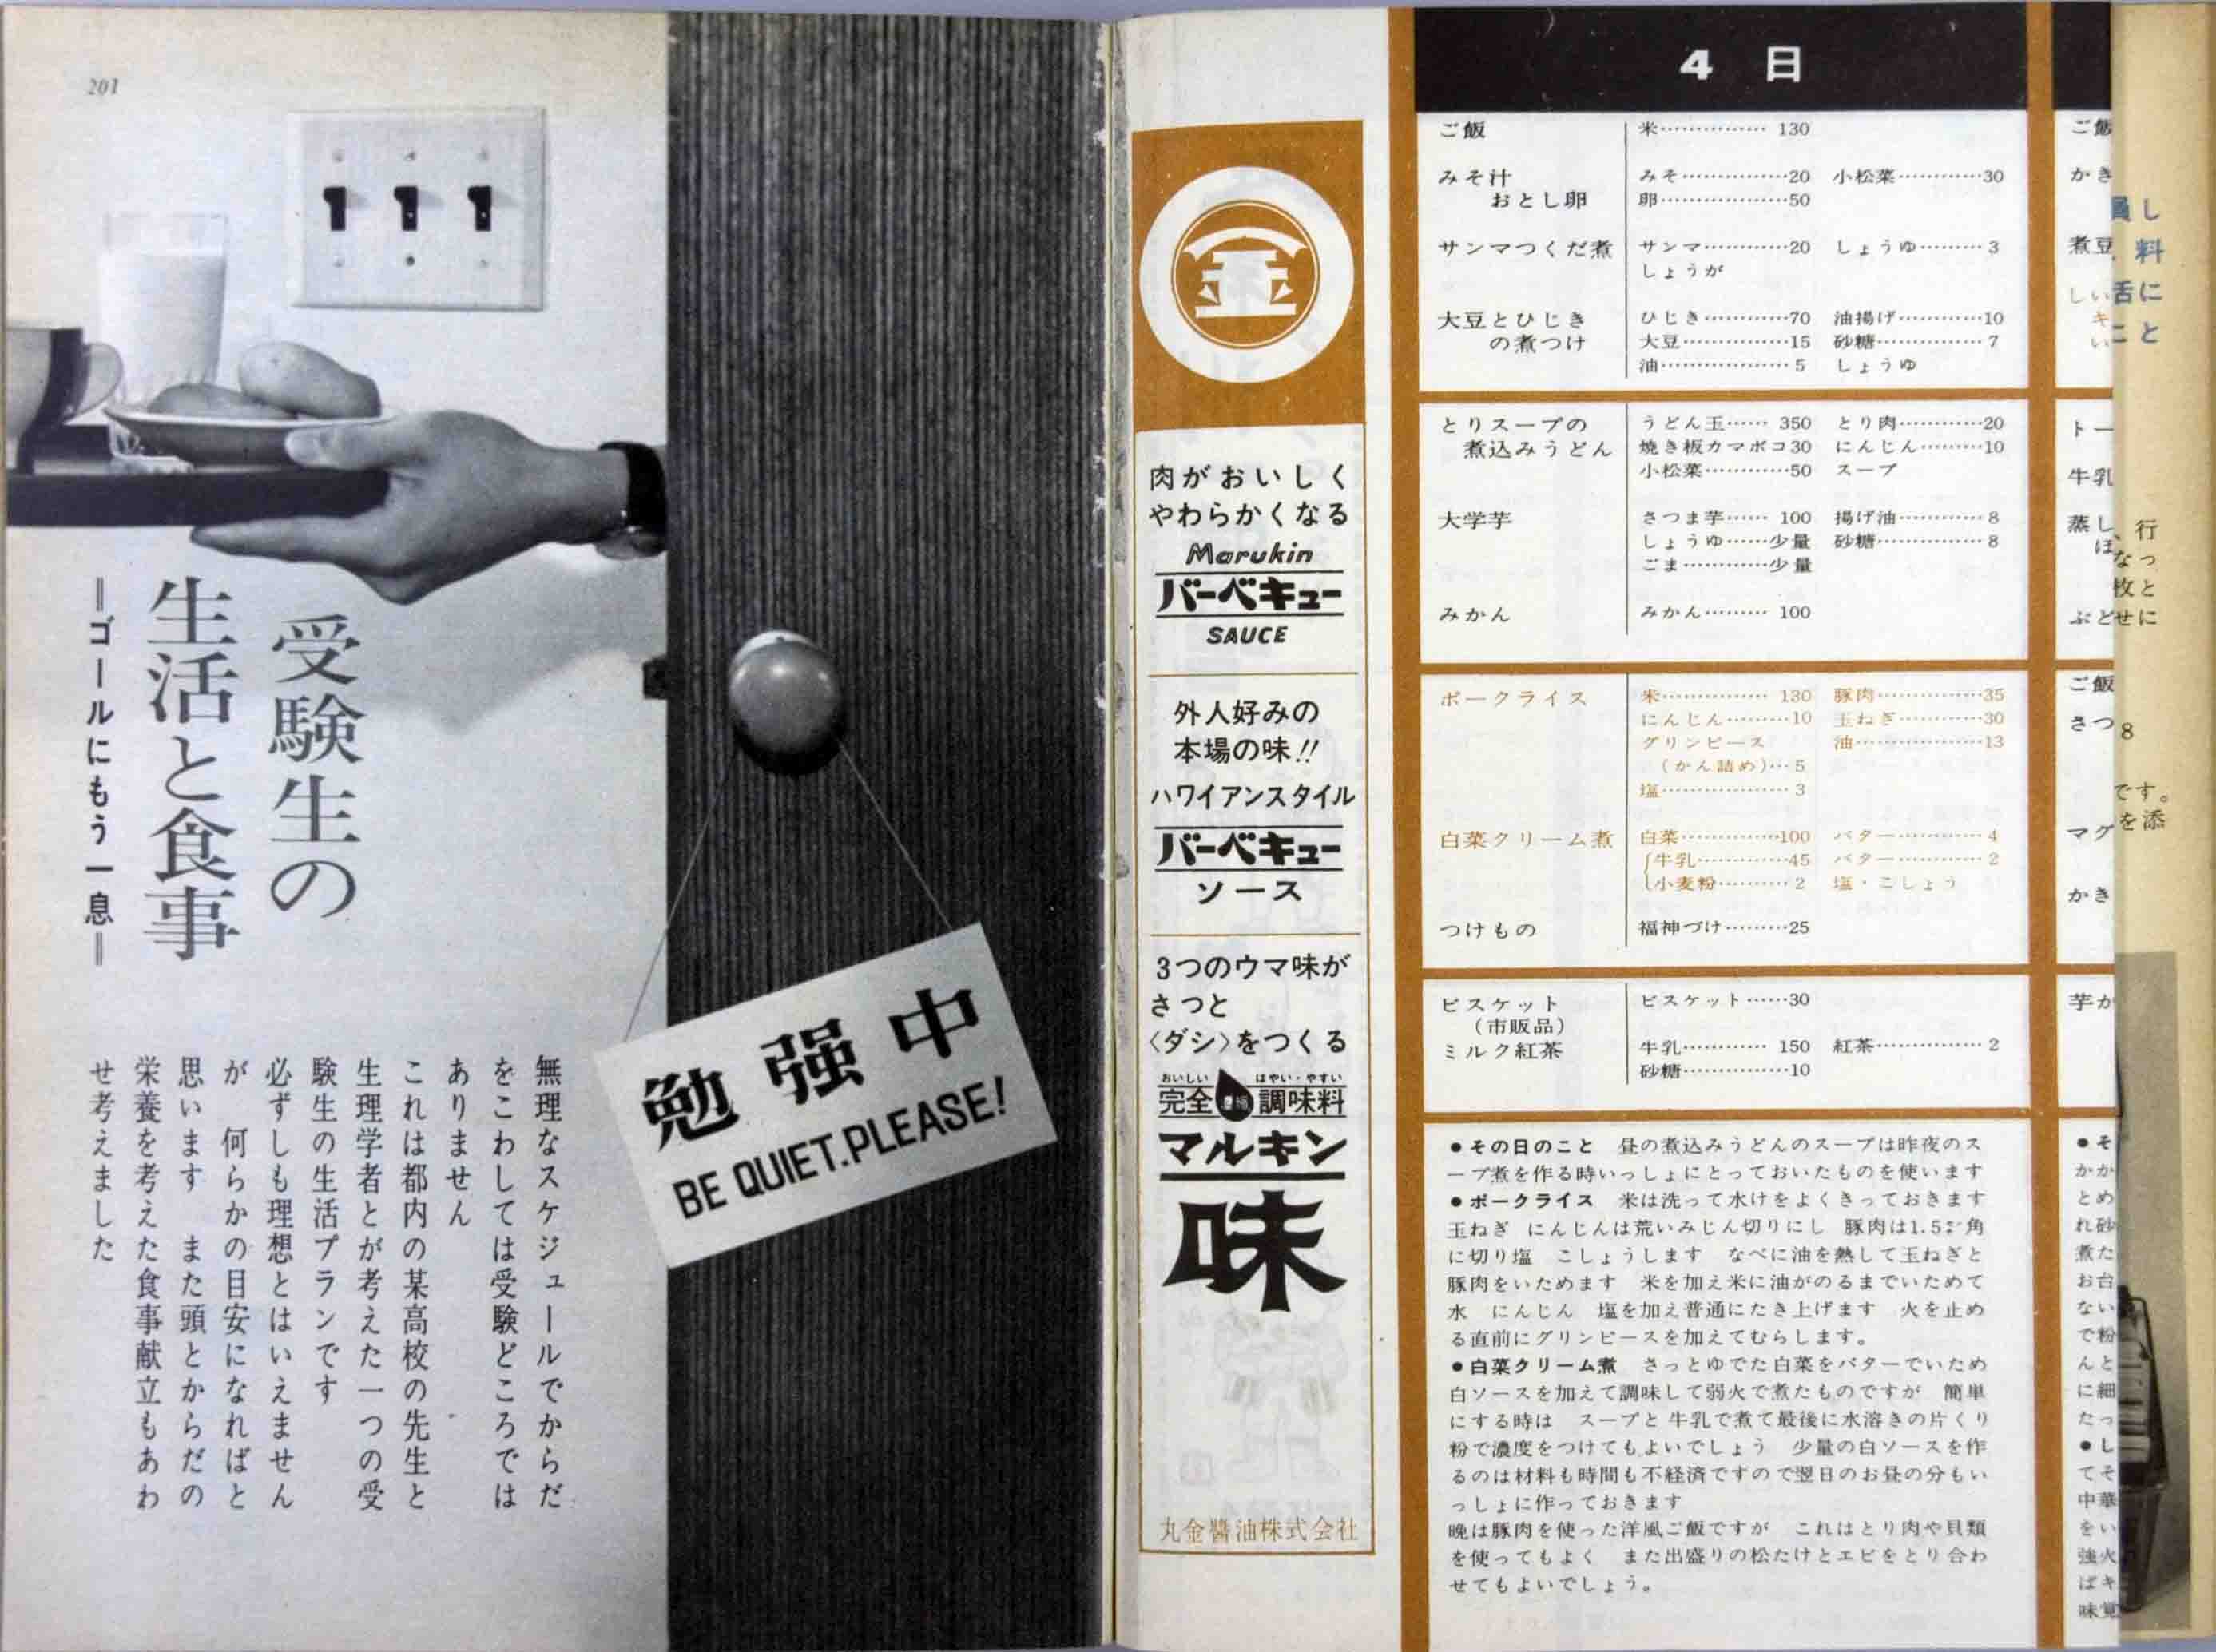 201
受験生の
生活と食事
＝ゴールにもう一息＝
無理なスケジュールでからだ
をこわしては受験どころでは
ありません
これは都内の某高校の先生と
生理学者とが考えた一つの受
験生の生活プランです
必ずしも理想とはいえません
が　何らかの目安になればと
思います　また頭とからだの
栄養を考えた食事献立もあわ
せ考えました
勉強中
BE QUIET.PLEASE!
金
肉がおいしく
やわらかくなる
Marukin
バーベキュー
SAUCE
外人好みの
本場の味!!
ハワイアンスタイル
バーベキュー
ソース
3つのウマ味が
さっと
〈ダシ〉をつくる
おいしい　はやい・やすい
完全　調味料
マルキン
味
丸金醬油株式会社
4日
ご飯　米……………130
みそ汁　みそ……………20　小松菜…………30
おとし卵　卵………………50
サンマつくだ煮　サンマ…………20　しょうゆ………3
しょうが
大豆とひじき　ひじき…………70　油揚げ…………10
の煮つけ　大豆……………15　砂糖……………7
油………………5　しょうゆ
とりスープの　うどん玉……350　とり肉…………20
煮込みうどん　焼き板カマボコ30　にんじん………10
小松菜…………50　スープ
大学芋　さつま芋……100　揚げ油…………8
しょうゆ……少量　砂糖……………8
ごま…………少量
みかん　みかん………100
ポークライス　米……………130　豚肉……………35
にんじん………10　玉ねぎ…………30
グリンピース　油………………13
（かん詰め）…5
塩………………3
白菜クリーム煮　白菜……………100　バター…………4
牛乳…………45　バター…………2
小麦粉…………2　塩・こしょう
つけもの　福神づけ………25
ビスケット　ビスケット……30
（市販品）
ミルク紅茶　牛乳…………150　紅茶……………2
砂糖……………10
●その日のこと　昼の煮込みうどんのスープは昨夜のス
ープ煮を作る時いっしょにとっておいたものを使います
●ポークライス　米は洗って水けをよくきっておきます
玉ねぎ　にんじんは荒いみじん切りにし　豚肉は1.5㌢角
に切り塩　こしょうします　なべに油を熱して玉ねぎと
豚肉をいためます　米を加え米に油がのるまでいためて
水　にんじん　塩を加え普通にたき上げます　火を止め
る直前にグリンピースを加えてむらします。
●白菜クリーム煮　さっとゆでた白菜をバターでいため
白ソースを加えて調味して弱火で煮たものですが　簡単
にする時は　スープと牛乳で煮て最後に水溶きの片くり
粉で濃度をつけてもよいでしょう　少量の白ソースを作
るのは材料も時間も不経済ですので翌日のお昼の分もい
っしょに作っておきます
晩は豚肉を使った洋風ご飯ですが　これはとり肉や貝類
を使ってもよく　また出盛りの松たけとエビをとり合わ
せてもよいでしょう。
ご飯
かき
煮豆
しい
キ
い
トー
牛乳
蒸し
ほ
ぶど
ご飯
さつ
マグ
かき
芋か
●そ
かか
とめ
れ砂
煮た
お台
ない
で粉
んと
に細
たっ
●し
てそ
中華
をい
強火
ばキ
味覚
し
料
活に
こと
、行
なっ
枚と
せに
8
です。
を添